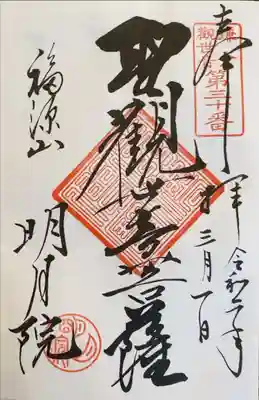 奉拝
令和二年
三月一日
鎌倉
觀世音第三十番
聖觀世音菩薩
福源山
明月院